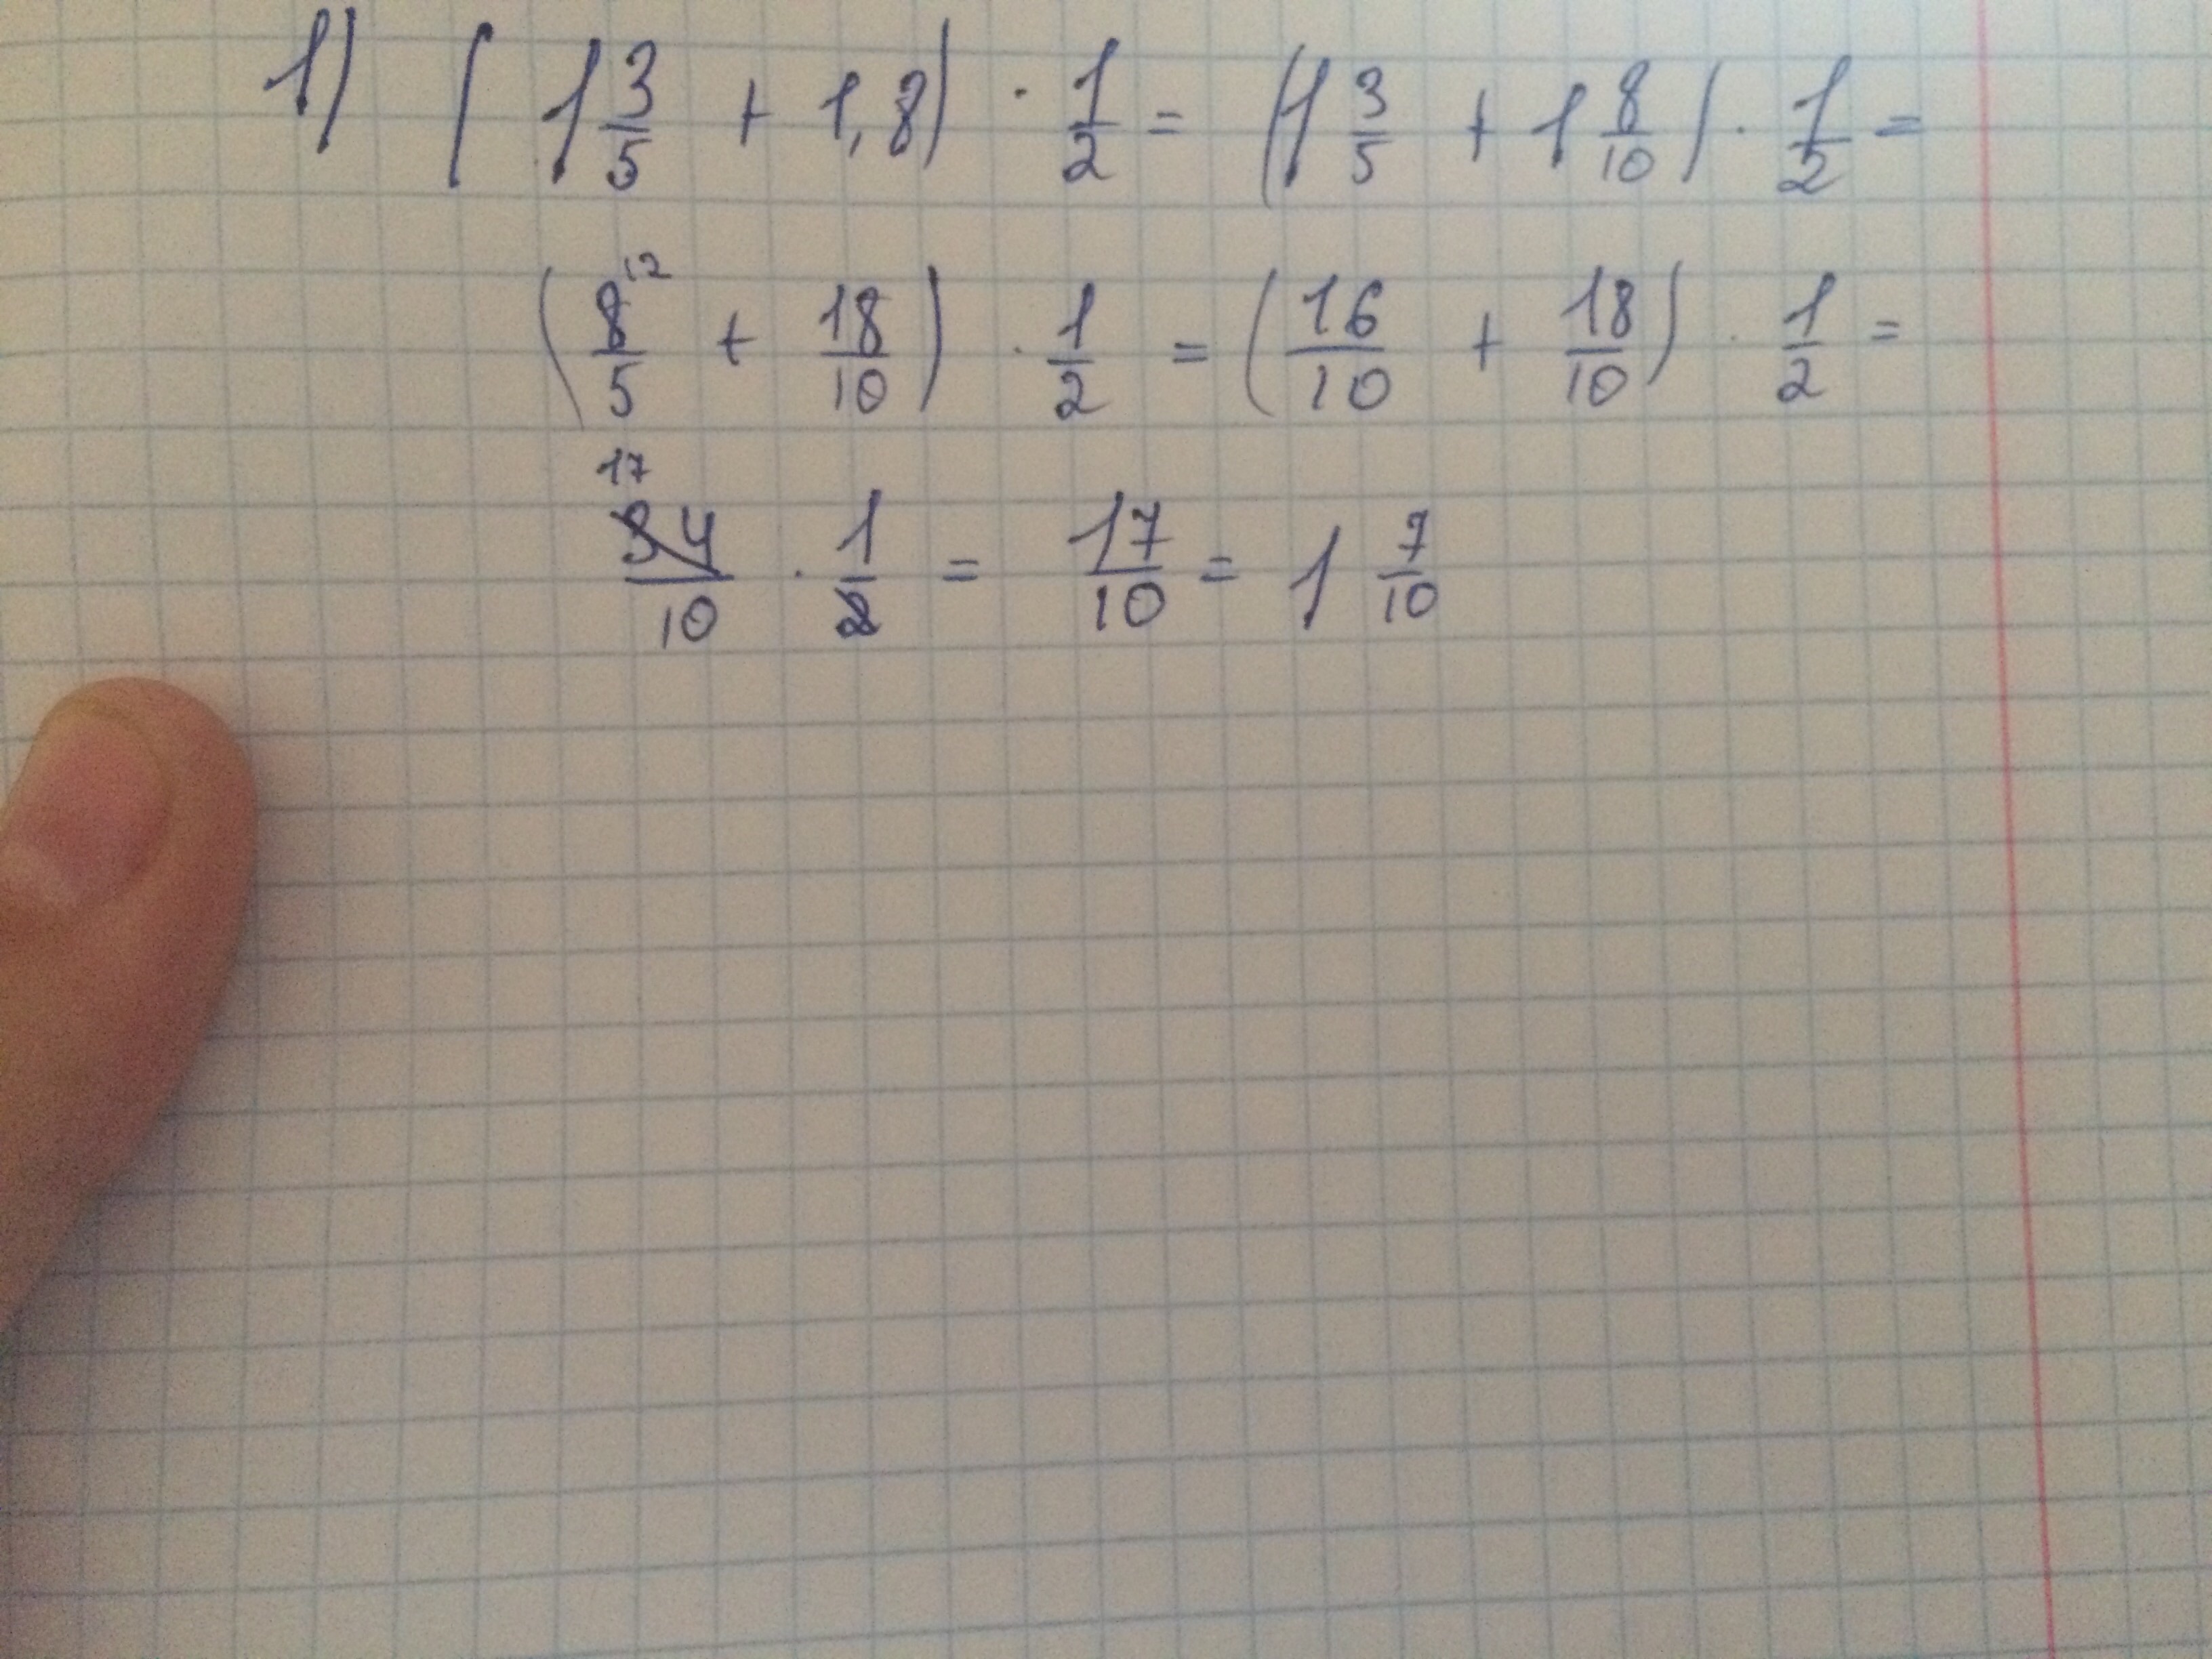 1) (1 3/5 + 1,8) · 1/2 = (1 3/5 + 1 8/10) · 1/2 =
(8/5 + 18/10) · 1/2 = (16/10 + 18/10) · 1/2 =
34/10 · 1/2 = 17/10 = 1 7/10